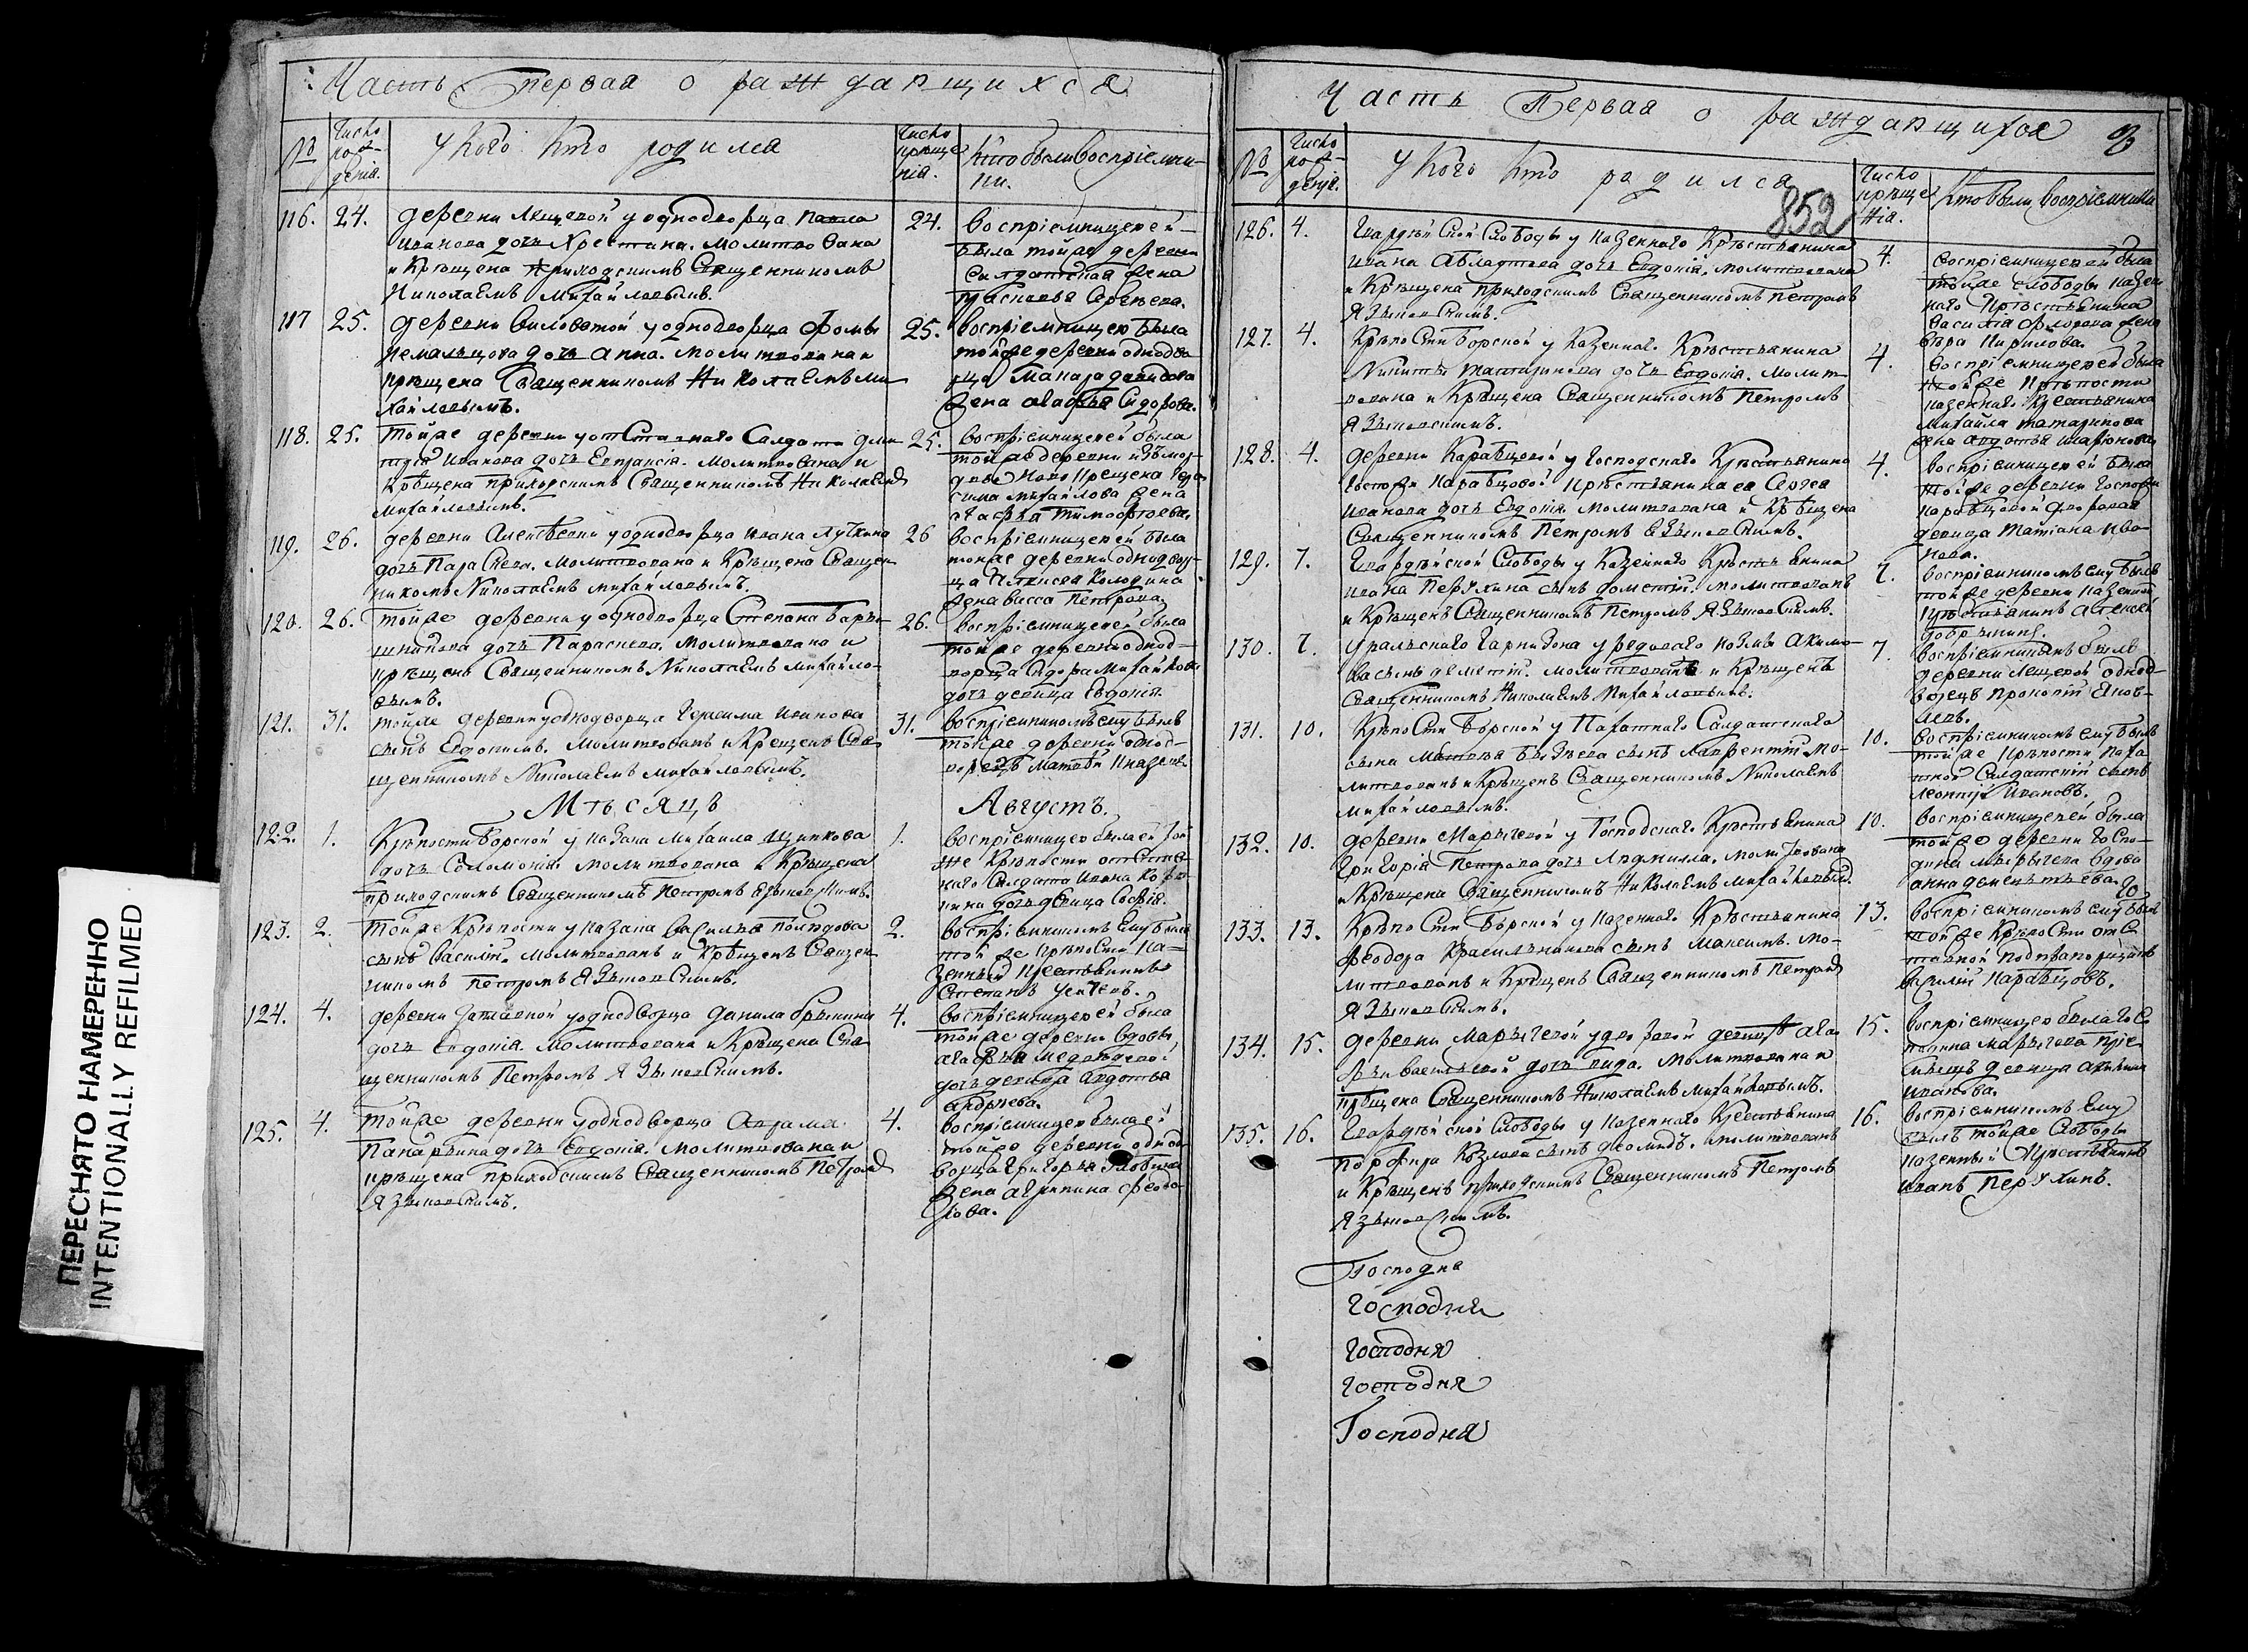 Часть первая о раждающихся
№
Число рождения.
У кого кто родился
Число крещения.
Кто были воспріемники.
116. 24. деревни Лещевой у однодворца павла
иванова дочь Христина. молитвована
и Крѣщена приходскимъ Священникомъ
Николаемъ Михайловымъ.
24. воспріемницею ей
была тойже деревни
салдатская жена
117 25. деревни виловатой у однодворца Фомы
дочь анна. молитвована и
крѣщена Священникомъ Николаемъ Ми-
хайловымъ.
25. воспріемницею была
тойже деревни однодво
рца Макара давидова
жена агафья Сидорова.
118. 25. тойже деревни у отставнаго Салдата дми
трія иванова дочь Евпраксія. Молитвована и
Крѣщена приходскимъ Священникомъ Николаемъ
Михайловымъ.
25. воспріемницеюей была
тойже деревни
ново крещена Гера
сима михайлова жена
агафья тимофѣева.
119. 26. деревни Алексѣевки у однодворца ивана лучкина
дочь Параскева. Молитвована и Крѣщена Священ
никомъ Николаемъ михайловымъ.
26 воспріемницеюей была
тойже деревни однодвор-
ца
жена васса Петрова.
120. 26. тойже деревни у однодворца Степана Бары-
шникова дочь Параскева. Молитвована и
крѣщена Священникомъ Николаемъ Михайло-
вымъ.
26. воспріемницеюей была
тойже деревни однод-
ворца Сидора Михайлова
дочь девица Евдокія.
121. 31. тойже деревни у однодворца Герасима иванова
сынъ Евдокимъ. Молитвованъ и Крещенъ Свя-
щенникомъ Николаемъ Михайловымъ.
31. воспріемникомъ ему былъ
тойже деревни однод-
ворецъ Матвей Князевъ
Мѣсяцъ Августъ.
122. 1. Крѣпости Борской у казака михаила Щипкова
дочь Соломонія. молитвована и Крѣщена
приходскимъ Священникомъ Петромъ Языковскимъ.
1. воспріемницею была ей той
же Крѣпости отстав-
наго Салдата ивана
дочь девица Софія.
123. 2. тойже Крѣпости у казака василья
сынъ василій. молитвованъ и Крѣщенъ Священ
никомъ Петромъ Языковскимъ.
2. воспріемникомъ Ему былъ
той же крѣпости Ка-
зенный Крестьянинъ
Степанъ
124. 4. деревни Заплавной у однодворца данила брыкина
дочь Евдокія. Молитвована и Крѣщена Свя-
щенникомъ Петромъ Языковскимъ.
4. воспріемницеюей была
тойже деревни вдовы
агафьи медведевой
дочь девица авдотья
андреева.
125. 4. тойже деревни у однодворца Авраама
Панарьина дочь Евдокія. молитвована и
крѣщена приходскимъ Священникомъ Петромъ
Языковскимъ.
4. воспріемницею была ей
тойже деревни однод-
ворца Григорья Злобина
жена агрипина Феодо-
рова.
Часть Первая о раждающихся
852
№
Число рожденія.
У кого кто родился
Число крещенія.
Кто были воспріемники
126. 4. Гвардѣйской Слободы у казеннаго Крѣстьянина
ивана дочь Евдокія. молитвована
и Крѣщена приходскимъ Священникомъ Петромъ
Языковскимъ.
4. воспріемницеюей была
тойже слободы казен
наго Крѣстьянина
василія Фролова жена
вера Кирилова.
127. 4. Крѣпости Борской у Казеннаго Крѣстьянина
Никиты татаринова дочь Евдокія. Молит-
вована и Крѣщена Священникомъ Петромъ
Языковскимъ.
4. воспріемницеюей была
тойже Крѣпости
казеннаго Крестьянина
михайла татаринова
жена авдотья
128. 4. деревни Карабцевой у Господскаго Крѣстьянина
Госпожи Карабцовой Крѣстьянина ея Сергея
иванова дочь Евдокія. молитвована и Крѣщена
Священникомъ Петромъ Языковскимъ.
4. воспріемницеюей была
тойже деревни Госпожи
Карабцовой дворовая
девица Татіана ива-
нова.
129. 7. Гвардѣйской Слободы у Казеннаго Крѣстьянина
ивана Перухина сынъ дометій. молитвованъ
и Крѣщенъ Священникомъ Петромъ Языковскимъ.
7. воспріемникомъ ему былъ
тойже деревни казенный
Крѣстьянинъ алексей
добрынинъ.
130. 7. Уральскаго Гарнизона у редоваго козмы акимо-
ва сынъ дометій. молитвованъ и Крѣщенъ
Священникомъ Николаемъ Михайловымъ.
7. воспріемникомъ былъ
деревни Лещевой однод-
ворецъ прокопій
131. 10. Крѣпости Борской у Пахатнаго Салдатскаго
сына Матвея сынъ Лаврентій. Мо-
литвованъ и Крѣщенъ Священникомъ Николаемъ
Михайловымъ.
10. воспріемникомъ ему былъ
тойже Крѣпости паха-
тной Салдатскій сынъ
леонтій Ивановъ.
132. 10. деревни Марычевой у Господскаго Крѣстьянина
Григорія Петрова дочь Людмилла. молитвована
и Крѣщена Священникомъ Николаемъ михайловымъ.
10. воспріемницеюей была
тойже деревни Госпо-
дина марычева вдова
анна дементьева.
133. 13. Крѣпости Борской у казеннаго Крѣстьянина
Феодора Красильникова сынъ Максимъ. мо-
литвованъ и Крѣщенъ Священникомъ Петромъ
Языковскимъ.
13. воспріемникомъ ему былъ
тойже Крѣпости отс
тавной подпрапорщикъ
василій Карабцовъ.
134. 15. деревни Марычевой у дворовой девки
васильевой дочь лида. молитвована и
крѣщена Священникомъ Николаемъ михайловымъ.
15. воспріемницею была Гос
иванова.
135. 16. Гвардѣйской Слободы у казеннаго Крестьянина
порфира Козлова сынъ диомидъ. молитвованъ
и Крѣщенъ приходскимъ Священникомъ Петромъ
Языковскимъ.
16. воспріемникомъ Ему
былъ тойже Слободы
казенный Крестьянинъ
иванъ Перухинъ.
Господне
Господня
Господня
Господня
Господня
ПЕРЕСНЯТО НАМЕРЕННО
INTENTIONALLY REFILMED